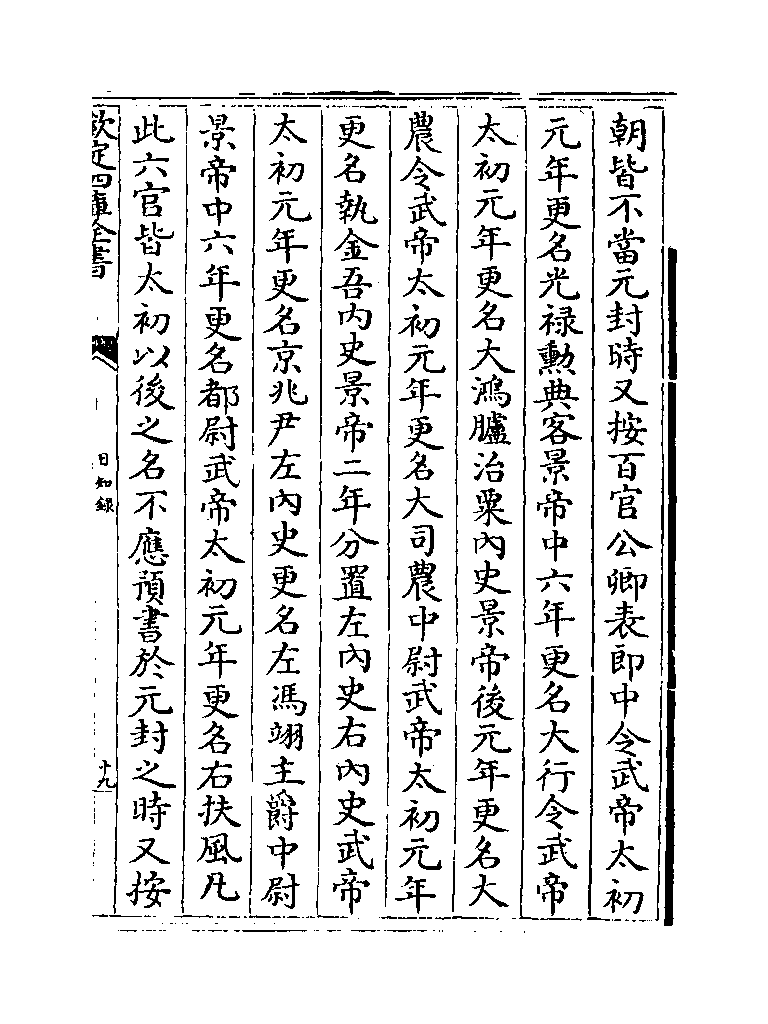 朝皆不當元封時又按百官公卿表郎中令武帝太初
元年更名光禄勲典客景帝中六年更名大行令武帝
太初元年更名大鴻臚治粟內史景帝後元年更名大
農令武帝太初元年更名大司農中尉武帝太初元年
更名執金吾內史景帝二年分置左內史右內史武帝
太初元年更名京兆尹左內史更名左馮翊主爵中尉
景帝中六年更名都尉武帝太初元年更名右扶風凡
此六官皆太初以後之名不應預書於元封之時又按
欽定四庫全書
日知錄
十九